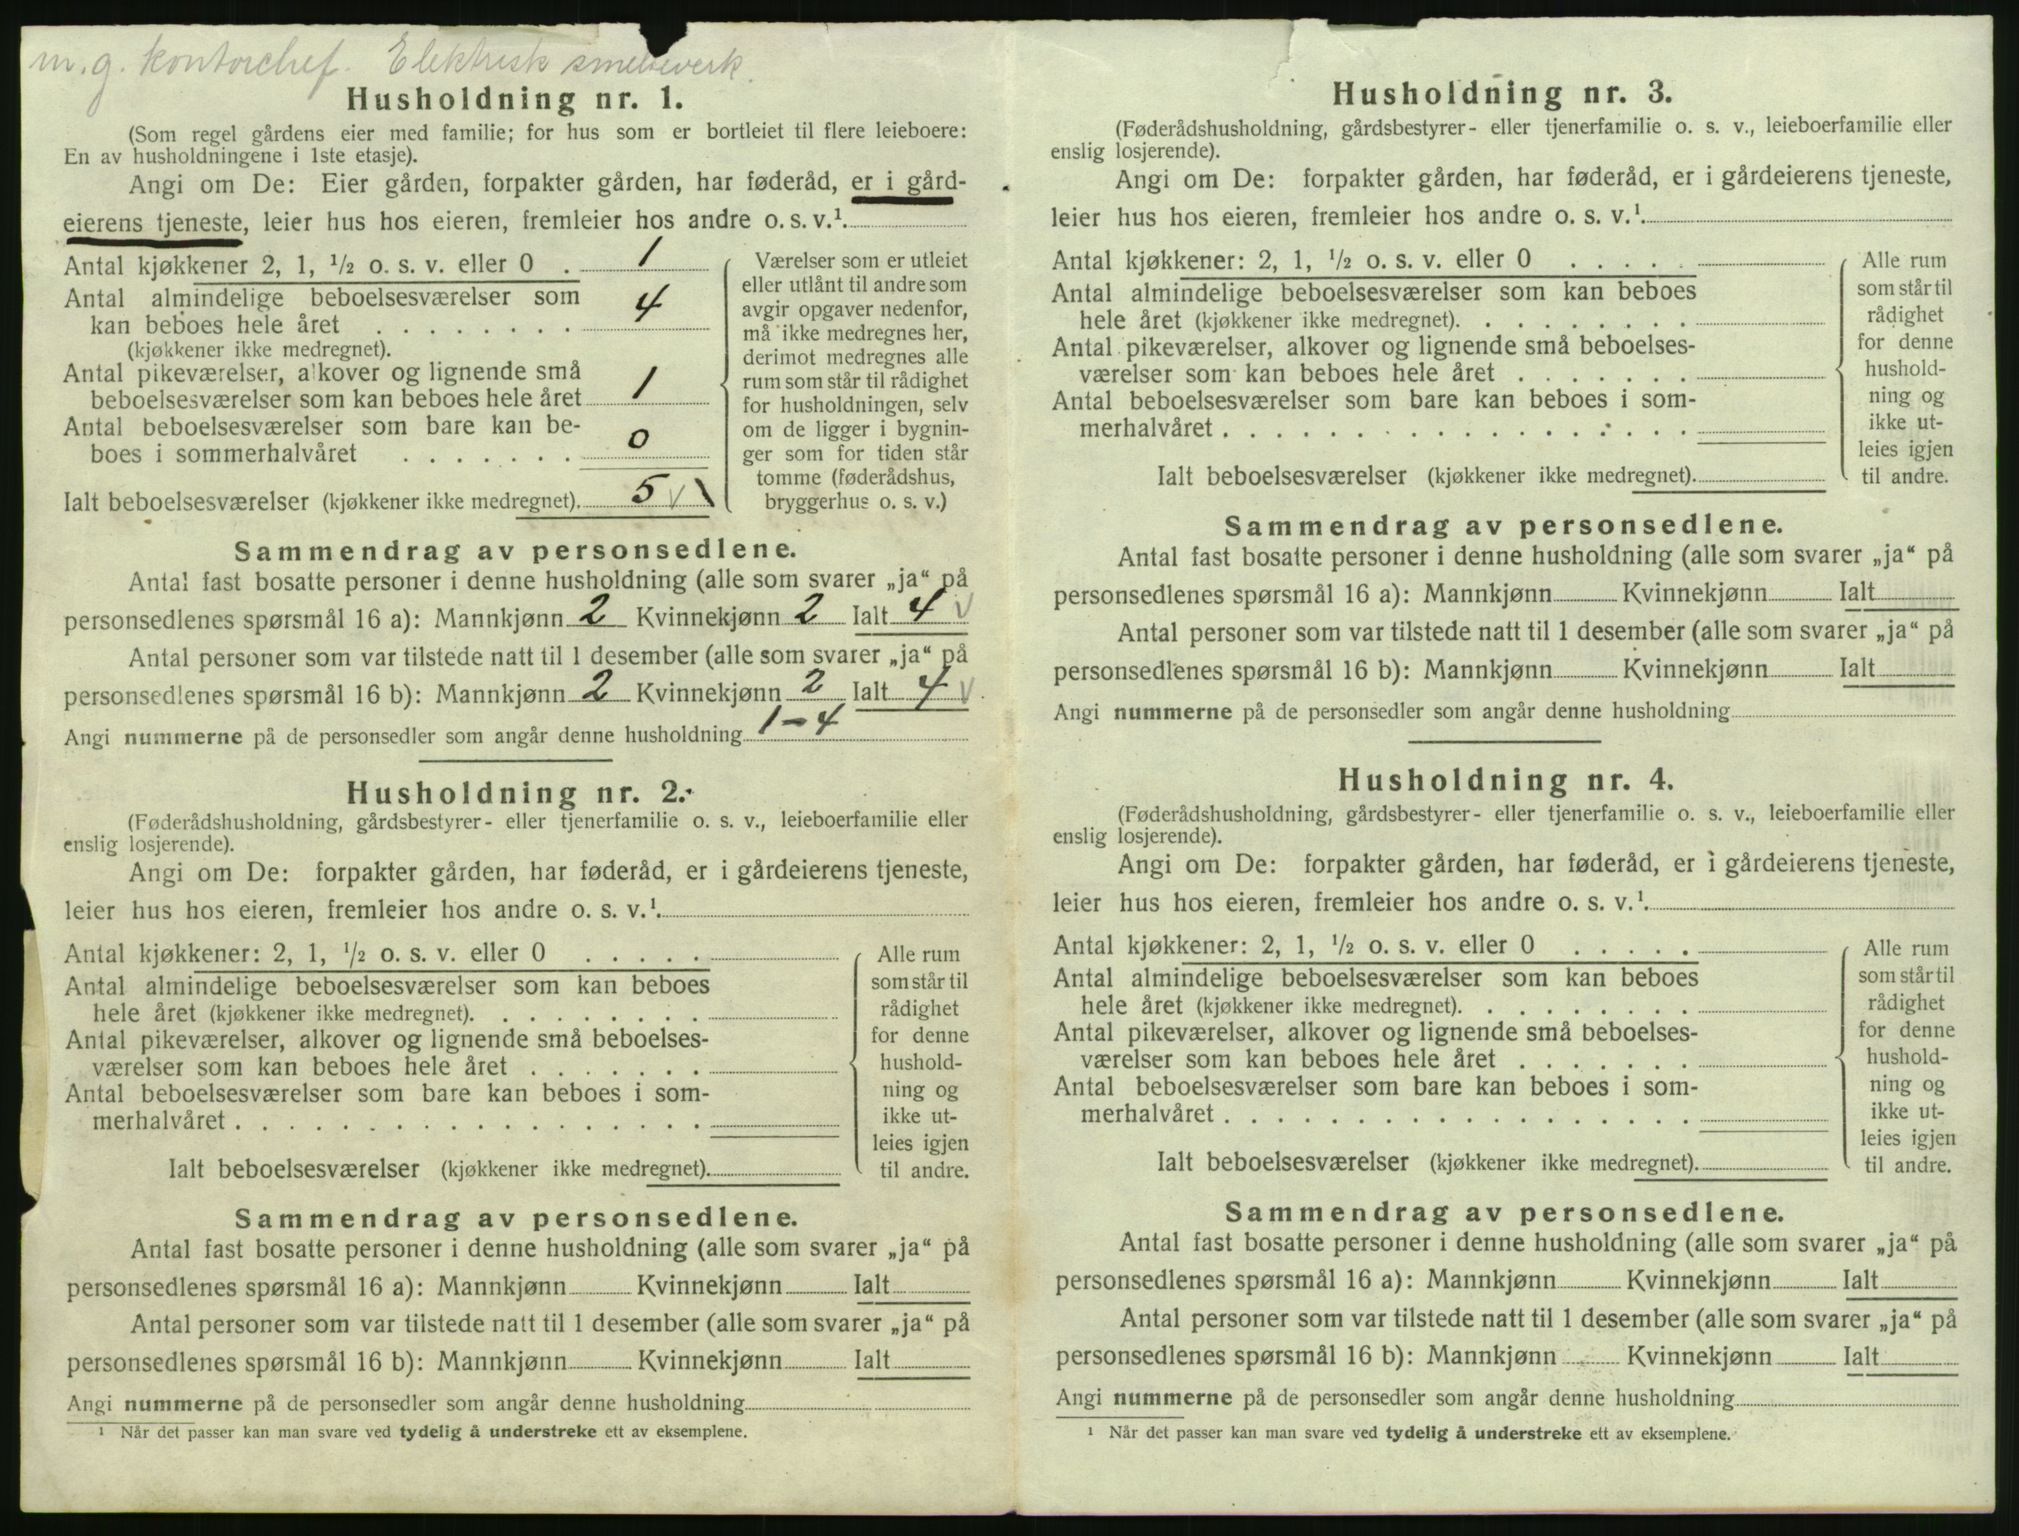 m. g. kontorchef. Elektrisk smelteverk.
Husholdning nr. 1.
(Som regel gårdens eier med familie; for hus som er bortleiet til flere leieboere:
En av husholdningene i 1ste etasje).
Angi om De: Eier gården, forpakter gården, har føderåd, er i gård-
eierens tjeneste, leier hus hos eieren, fremleier hos andre o. s. v.¹.
Antal kjøkkener 2, 1, ½ o. s. v. eller 0 . 1
Antal almindelige beboelsesværelser som
kan beboes hele året . . . . . . . . 4
(kjøkkener ikke medregnet).
Antal pikeværelser, alkover og lignende små
beboelsesværelser som kan beboes hele året 1
Antal beboelsesværelser som bare kan be-
boes i sommerhalvåret . . . . . . . 0
Ialt beboelsesværelser (kjøkkener ikke medregnet). 5 V \
Værelser som er utleiet
eller utlånt til andre som
avgir opgaver nedenfor,
må ikke medregnes her,
derimot medregnes alle
rum som står til rådighet
for husholdningen, selv
om de ligger i bygnin-
ger som for tiden står
tomme (føderådshus,
bryggerhus o. s. v.)
Sammendrag av personsedlene.
Antal fast bosatte personer i denne husholdning (alle som svarer „ja“ på
personsedlenes spørsmål 16 a): Mannkjønn 2 Kvinnekjønn 2 Ialt 4 V
Antal personer som var tilstede natt til 1 desember (alle som svarer „ja“ på
personsedlenes spørsmål 16 b): Mannkjønn 2 Kvinnekjønn 2 Ialt 4 V
Angi nummerne på de personsedler som angår denne husholdning 1–4
Husholdning nr. 2.
(Føderådshusholdning, gårdsbestyrer- eller tjenerfamilie o. s. v., leieboerfamilie eller
enslig losjerende).
Angi om De: forpakter gården, har føderåd, er i gårdeierens tjeneste,
leier hus hos eieren, fremleier hos andre o. s. v.¹.
Antal kjøkkener: 2, 1, ½ o. s. v. eller 0 . . . . .
Antal almindelige beboelsesværelser som kan beboes
hele året (kjøkkener ikke medregnet). . . . . . . . .
Antal pikeværelser, alkover og lignende små beboelses-
værelser som kan beboes hele året . . . . . . .
Antal beboelsesværelser som bare kan beboes i som-
merhalvåret . . . . . . . . . . . . . . . . . .
Ialt beboelsesværelser (kjøkkener ikke medregnet).
Alle rum
som står til
rådighet
for denne
hushold-
ning og
ikke ut-
leies igjen
til andre.
Sammendrag av personsedlene.
Antal fast bosatte personer i denne husholdning (alle som svarer „ja“ på
personsedlenes spørsmål 16 a): Mannkjønn Kvinnekjønn Ialt
Antal personer som var tilstede natt til 1 desember (alle som svarer „ja“ på
personsedlenes spørsmål 16 b): Mannkjønn Kvinnekjønn Ialt
Angi nummerne på de personsedler som angår denne husholdning
¹ Når det passer kan man svare ved tydelig å understreke ett av eksemplene.
Husholdning nr. 3.
(Føderådshusholdning, gårdsbestyrer- eller tjenerfamilie o. s. v., leieboerfamilie eller
enslig losjerende).
Angi om De: forpakter gården, har føderåd, er i gårdeierens tjeneste,
leier hus hos eieren, fremleier hos andre o. s. v.¹.
Antal kjøkkener: 2, 1, ½ o. s. v. eller 0 . . . . .
Antal almindelige beboelsesværelser som kan beboes
hele året (kjøkkener ikke medregnet). . . . . . . . .
Antal pikeværelser, alkover og lignende små beboelses-
værelser som kan beboes hele året . . . . . . .
Antal beboelsesværelser som bare kan beboes i som-
merhalvåret . . . . . . . . . . . . . . . . . .
Ialt beboelsesværelser (kjøkkener ikke medregnet).
Alle rum
som står til
rådighet
for denne
hushold-
ning og
ikke ut-
leies igjen
til andre.
Sammendrag av personsedlene.
Antal fast bosatte personer i denne husholdning (alle som svarer „ja“ på
personsedlenes spørsmål 16 a): Mannkjønn Kvinnekjønn Ialt
Antal personer som var tilstede natt til 1 desember (alle som svarer „ja“ på
personsedlenes spørsmål 16 b): Mannkjønn Kvinnekjønn Ialt
Angi nummerne på de personsedler som angår denne husholdning
Husholdning nr. 4.
(Føderådshusholdning, gårdsbestyrer- eller tjenerfamilie o. s. v., leieboerfamilie eller
enslig losjerende).
Angi om De: forpakter gården, har føderåd, er i gårdeierens tjeneste,
leier hus hos eieren, fremleier hos andre o. s. v.¹.
Antal kjøkkener: 2, 1, ½ o. s. v. eller 0 . . . . .
Antal almindelige beboelsesværelser som kan beboes
hele året (kjøkkener ikke medregnet). . . . . . . . .
Antal pikeværelser, alkover og lignende små beboelses-
værelser som kan beboes hele året . . . . . . .
Antal beboelsesværelser som bare kan beboes i som-
merhalvåret . . . . . . . . . . . . . . . . . .
Ialt beboelsesværelser (kjøkkener ikke medregnet).
Alle rum
som står til
rådighet
for denne
hushold-
ning og
ikke ut-
leies igjen
til andre.
Sammendrag av personsedlene.
Antal fast bosatte personer i denne husholdning (alle som svarer „ja“ på
personsedlenes spørsmål 16 a): Mannkjønn Kvinnekjønn Ialt
Antal personer som var tilstede natt til 1 desember (alle som svarer „ja“ på
personsedlenes spørsmål 16 b): Mannkjønn Kvinnekjønn Ialt
Angi nummerne på de personsedler som angår denne husholdning
¹ Når det passer kan man svare ved tydelig å understreke ett av eksemplene.